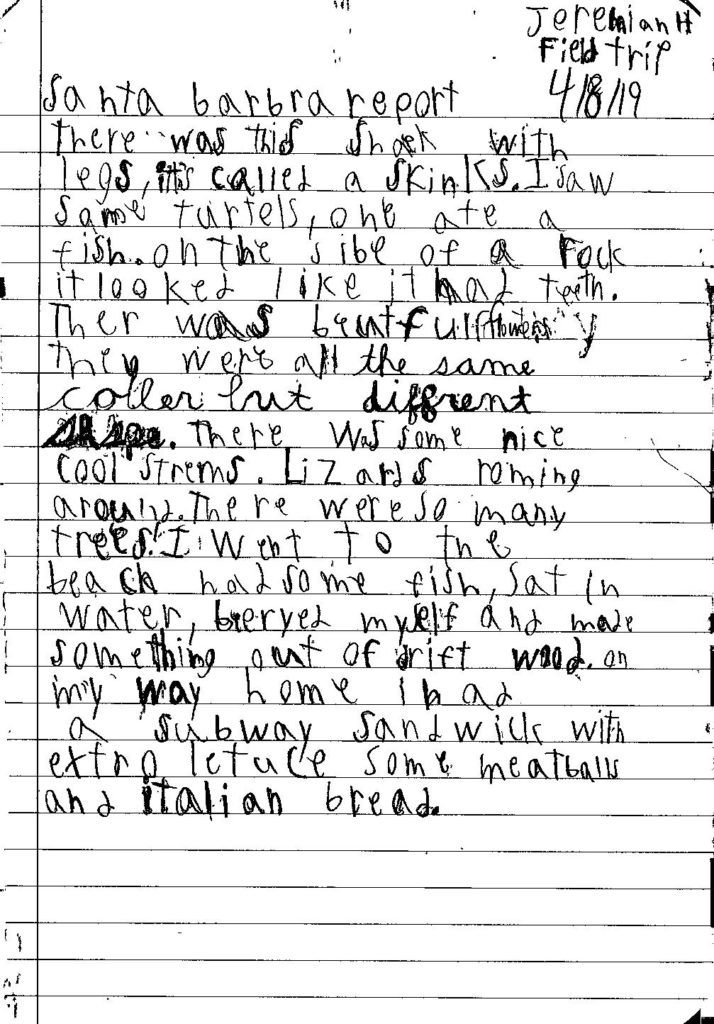 Jeremiah H
Field trip
4/8/19
santa barbra report
there was this snaek with
legs, it's called a skinks. I saw
some turtels, one ate a
fish. on the sibe of a rock
it looked like it had teeth.
Ther was beutfull flowers
they were all the same
coller but different
shape. There was some nice
cool strems. Lizards roming
around. There were so many
trees. I went to the
beach had some fish, sat in
water, beryed myself and made
something out of drift wood. on
my way home i had
a subway sandwich with
extra letuce some meatballs
and italian bread.